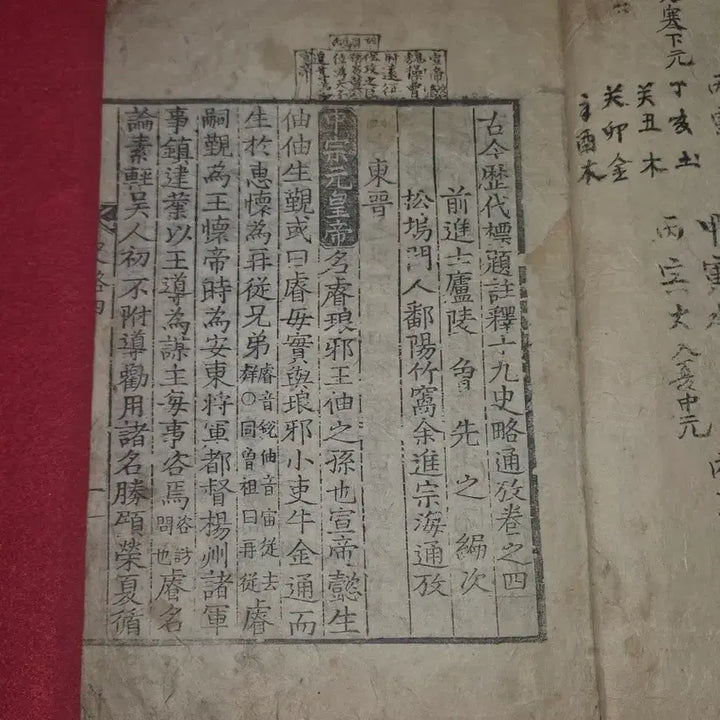 塞下元
丁亥土
癸丑木
癸卯金
辛酉木
丙
入夏中元
古今歷代標題註釋十九史略通攷卷之四
前進士廬陵 曾先之 編次
松塢門人鄱陽竹窩余進宗海通攷
東晉
中宗元皇帝名睿琅邪王伷之孫也宣帝懿生
伷伷生覲或曰睿母實與琅邪小吏牛金通而
生於惠懷為再從兄弟睿音銳伷音宙從去聲○同曾祖曰再從睿
嗣覲為王懷帝時為安東將軍都督楊州諸軍
事鎮建業以王導為謀主每事咨焉咨訪問也睿名
論素輕吳人初不附導勸用諸名勝顧榮夏循
史略四